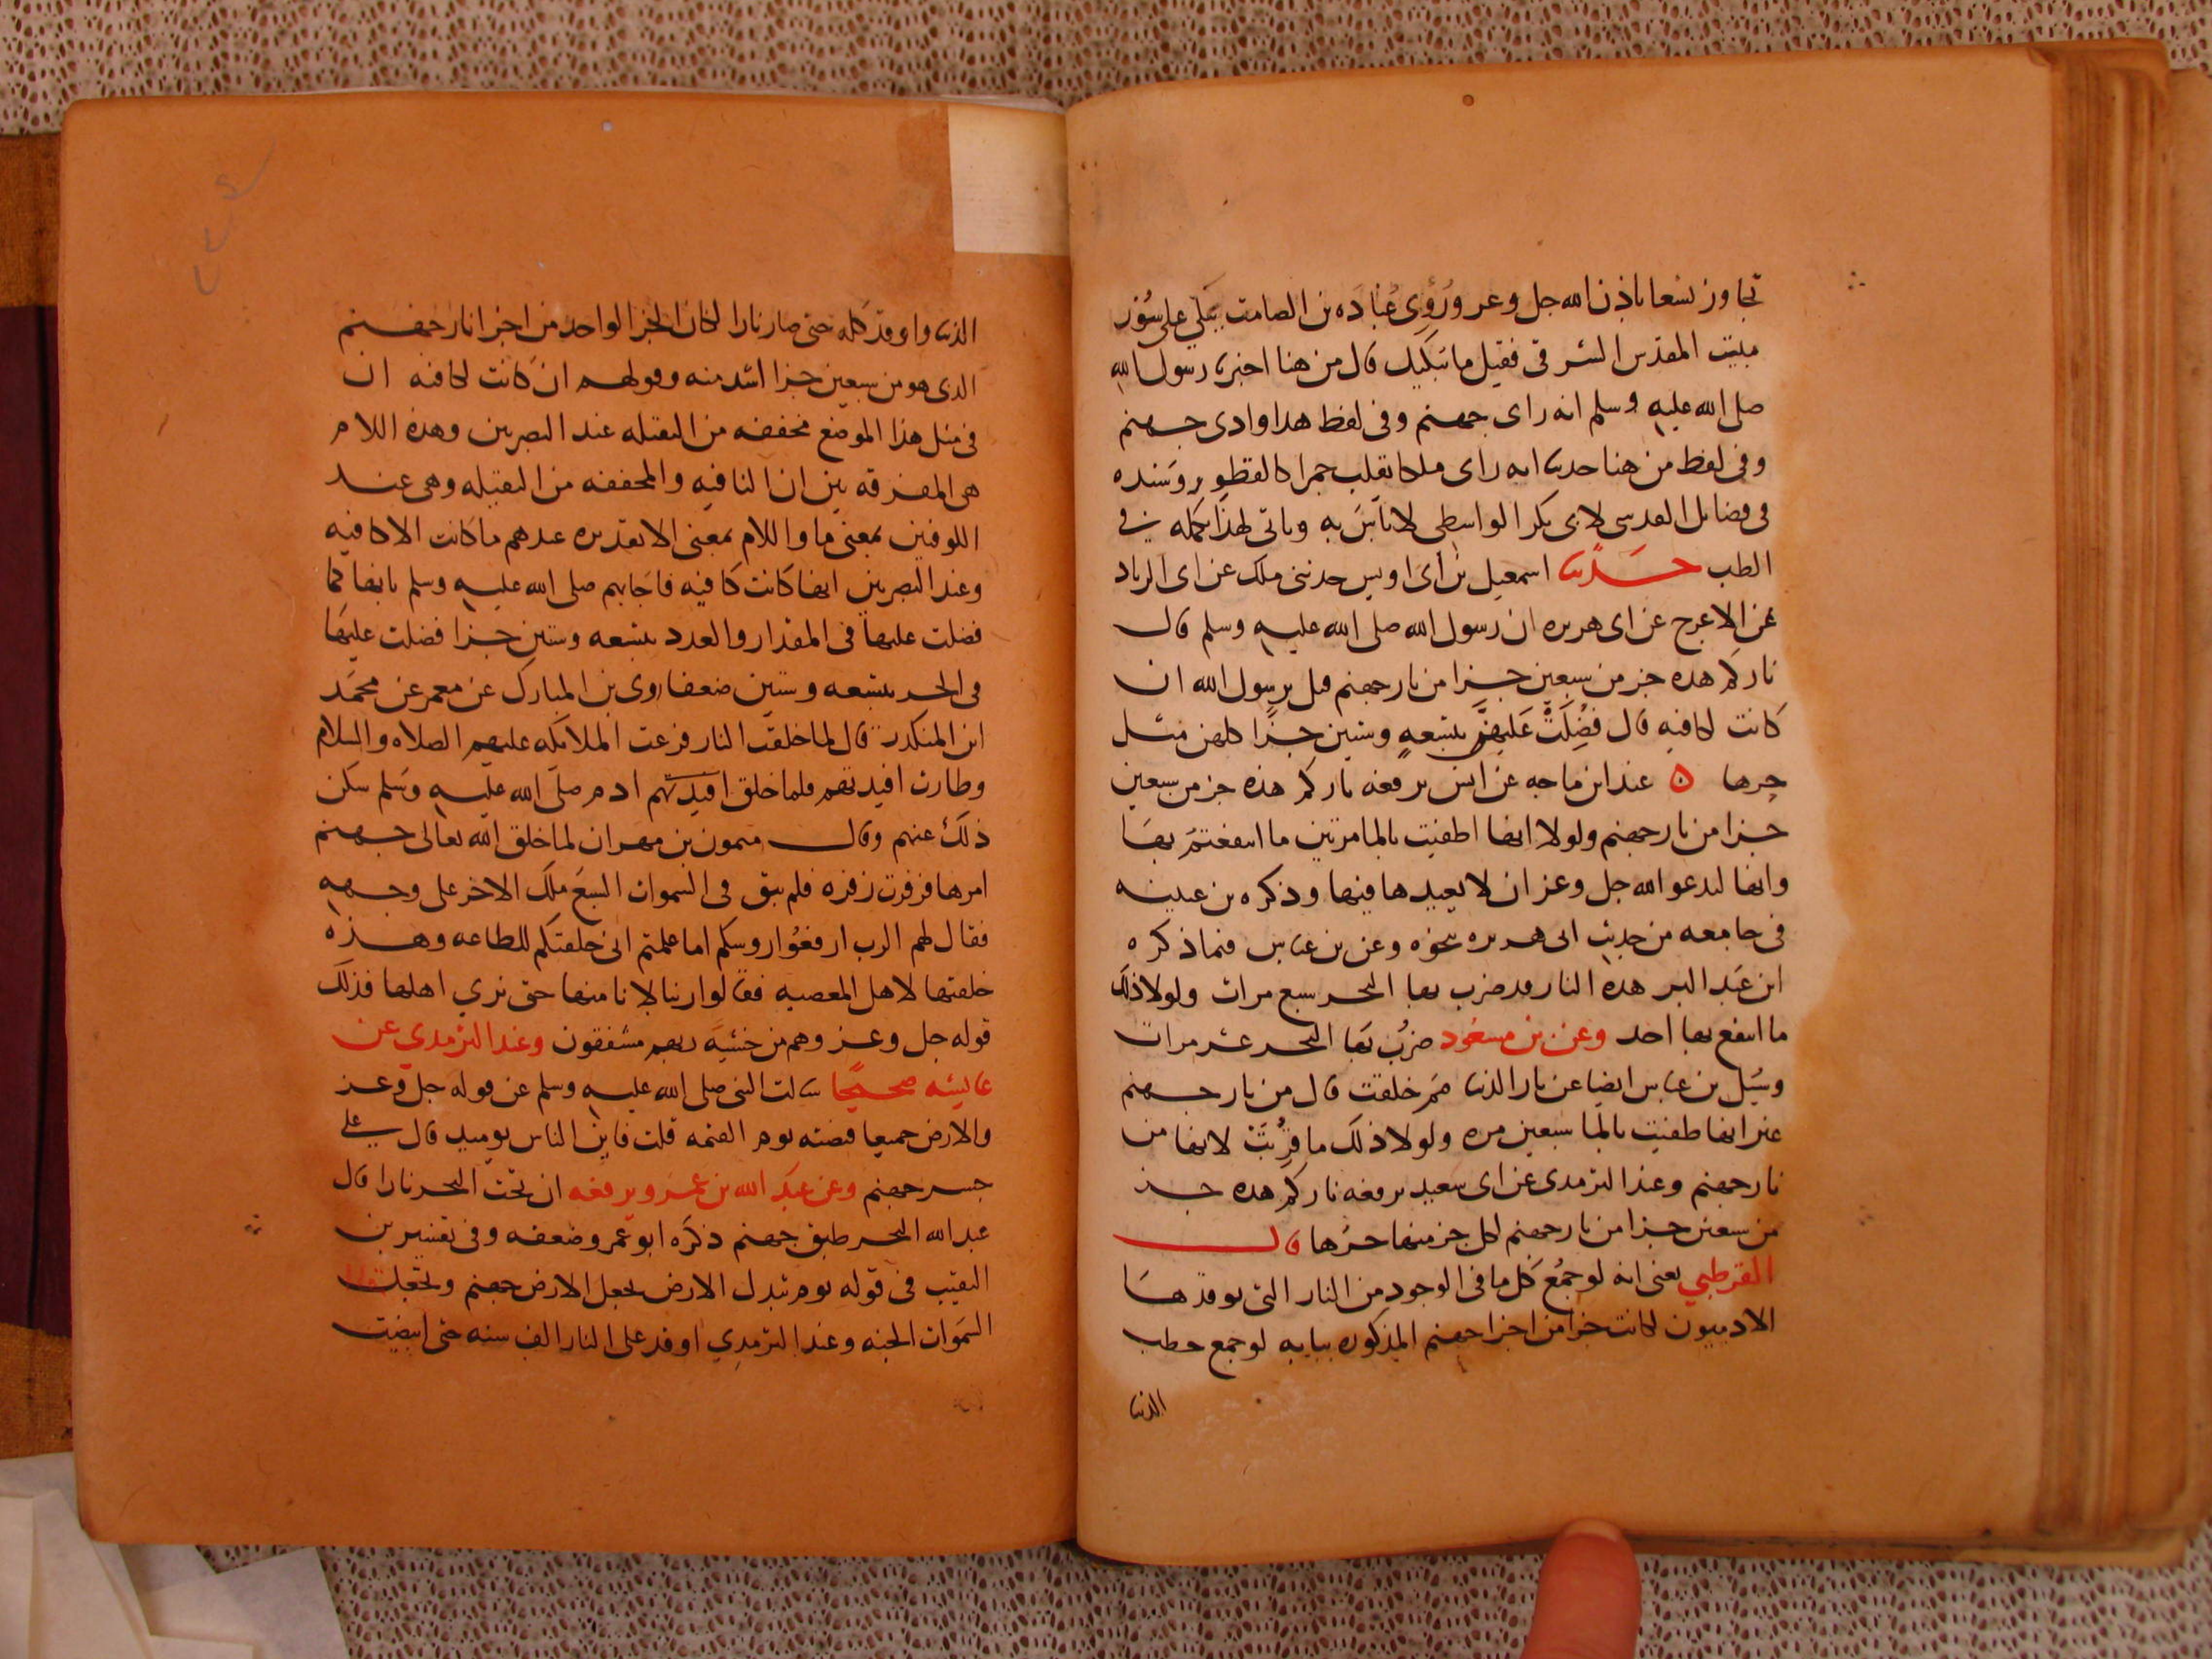 تجاوز تسعا باذن الله جل وعز ورُوِى عُبَادَه بن الصامت يَبكي على سُوْر
مبيت المقدس الشرقى فقيل ما يبكيك قال من هنا اخبرنا رسول الله
صلى الله عليه وسلم انه راى جهنم وفى لفظ هدا وادى جهنم
وفى لفظ من هنا حدثنا انه راى ملكا يقلب جمرا كالقطو وسنده
فى فضايل القدس لابى بكر الواسطى لا باس به وياتى لهذا تكمله فى
الطب حدثنا اسمعيل بن ابى اويس حدثنى ملك عن ابى الزناد
عن الاعرج عن ابى هريره ان رسول الله صلى الله عليه وسلم قال
ناركم هده جز من سبعين جزا من نار جهنم قيل يرسول الله ان
كانت لكافيه قال فُضِّلَتْ عَلَيهِنَّ بتسعهٍ وستين جزًا كلهن مثل
حرها ه عند ابن ماجه عن انس يرفعه ناركم هذه جز من سبعين
جزا من نار جهنم ولولا انها اطفيت بالما مرتين ما انتفعتمْ بهَا
وانها لتدعو الله جل وعز ان لا يعيدها فيها وذكره بن عيينه
فى جامعه من حديث ابى هريره نحوه وعن بن عباس فيما ذكره
ابن عَبد البر هده النار قد ضرب بها البحر سبع مرات ولولا ذلك
ما انتفع بها احد وعن بن مسعُود ضرُب بَها البحر عشر مرات
وسُيل بن عباس ايضا عن نار الدنيا مم خلقت قال من نار جهنم
غير انها طفيت بالما سبعين مره ولولا ذلك ما قُرِبَتْ لانها من
نار جهنم وعند الترمدى عن ابى سَعيد يرفعه ناركم هده جز
من سبعين جزا من نار جهنم لكل جز منها حرُها قال
القرطبي يعنى انه لو جمُع كل ما فى الوجود من النار التى يوقدهَا
الادميون لكانت جزا من اجزا جهنم المذكوره بيانه لو جمع حطب
الدنيا
الدنيا واوقد كله حتى صار نارا لكان الجزا الواحد من اجزا نار جهنم
الدى هو من سبعين جزا اشد منه وقولهم ان كانت لكافيه ان
فى مثل هذا الموضع مخففه من الثقيله عند البصريين وهذه اللام
هى المفرقه بين ان النافيه والمخففه من الثقيله وهى عند
الكوفيين بمعنى ما واللام بمعنى الا تقديره عندهم ما كانت الا كافيه
وعند البصريين انها كانت كافيه فاجابهم صلى الله عليه وسلم بانها كما
فضلت عليها فى المقدار والعدد بتسعه وستين جزا فضلت عليهَا
فى الحر بتسعه وستين ضعفا روى بن المبارك عن معمر عن محمَد
ابن المنكدر قال لما خلقت النار فزعت الملايكه عليهم الصلاه والسلام
وطارت افيدتهم فلما خلق ادم صلى الله عليه وسَلم سَكن
ذلك عنهم وقال ميمون بن مهران لما خلق الله تعالى جهنم
امرها فزفرت زفره فلم يبق فى السموات السبع ملك الا خر على وجهه
فقال لهم الرب ارفعُوا روسكم اما علمتم انى خلقتكم للطاعه وهذه
خلقتها لاهل المعصيه فقالوا ربنا لا نامنها حتى نري اهلها فذلك
قوله جل وعز وهم من خشيَه ربهم مشفقون وعند الترمدي عن
عايشه صحيحًا سالت النبى صلى الله عليه وسلم عن قوله جل وعز
والارض جميعا قبضته يوم القيمه قلت فاين الناس يوميد قال على
جسر جهنم وعن عبَد الله بن عمرو يرفعه ان تحت البحر نارا قال
عبد الله البحر طبق جهنم ذكرَه ابو عمر وضعفه وفى تفسير بن
النقيب فى قوله يوم تبدل الارض يجعل الارض جهنم وتجعل
السَموات الجنه وعند الترمدِي اوقد على النار الف سنه حتى ابيضت